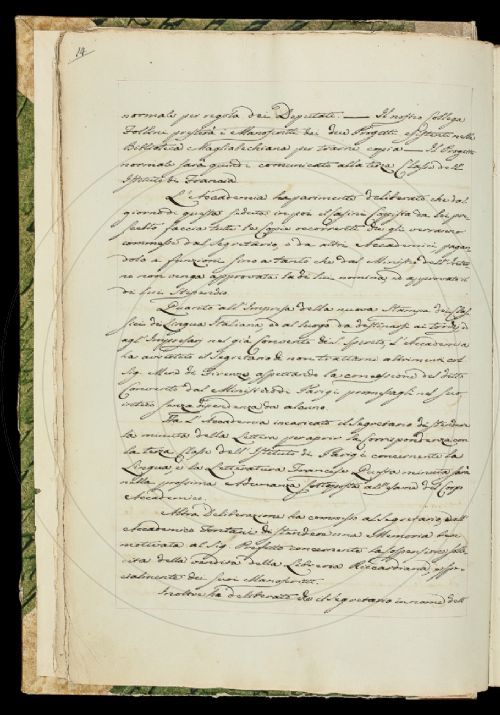 14
normale per regola dei Deputati. — Il nostro Collega
Follini presterà i Manoscritti dei due Progetti esistenti nella
Biblioteca Magliabechiana per trarne copia — Il Progetto
normale sarà quindi comunicato alla terza Classe dell'
Istituto di Francia
L'Accademia ha parimente deliberato che dal
giorno di questa seduta in poi il Copista da lei pre
scelto faccia tutte le copie occorrenti che gli verranno
commesse dal Segretario, o da altri Accademici pagan
dolo a funzioni sino a tanto che dal Ministro dell'Inter
no non venga approvata la di lui nomina, ed approvato il
di lui Stipendio.
Quanto all'Impresa della nuova Stampa dei Clas
sici di Lingua Italiana, ed al luogo da destinarsi ai torchi, e
agli Impressori nel già Convento di S. Spirito, l'Accademia
ha avvertito il Segretario di non trattarne altrimenti col
Sig. Mere di Firenze aspettando la concessione del detto
Convento dal Ministro di Parigi
intiero senza dipendenza da alcuno.
Ha L'Accademia incaricato il Segretario di stendere
la minuta della Lettera per aprir la Corrispondenza con
la terza Classe dell'Istituto di Parigi concernente la
Lingua e la Letteratura Francese. Questa minuta sarà
nella prossima Adunanza sottoposta all'esame del Corpo
Accademico.
Altra Deliberazione ha commesso al Segretario, e all'
Accademico Fontani di stendere una Memoria ben
motivata al Sig. Prefetto concernente la sospensione
della vendita della Libreria Riccardiana, e spe
cialmente dei suoi Manoscritti.
Inoltre ha deliberato che il Segretario in nome dell'